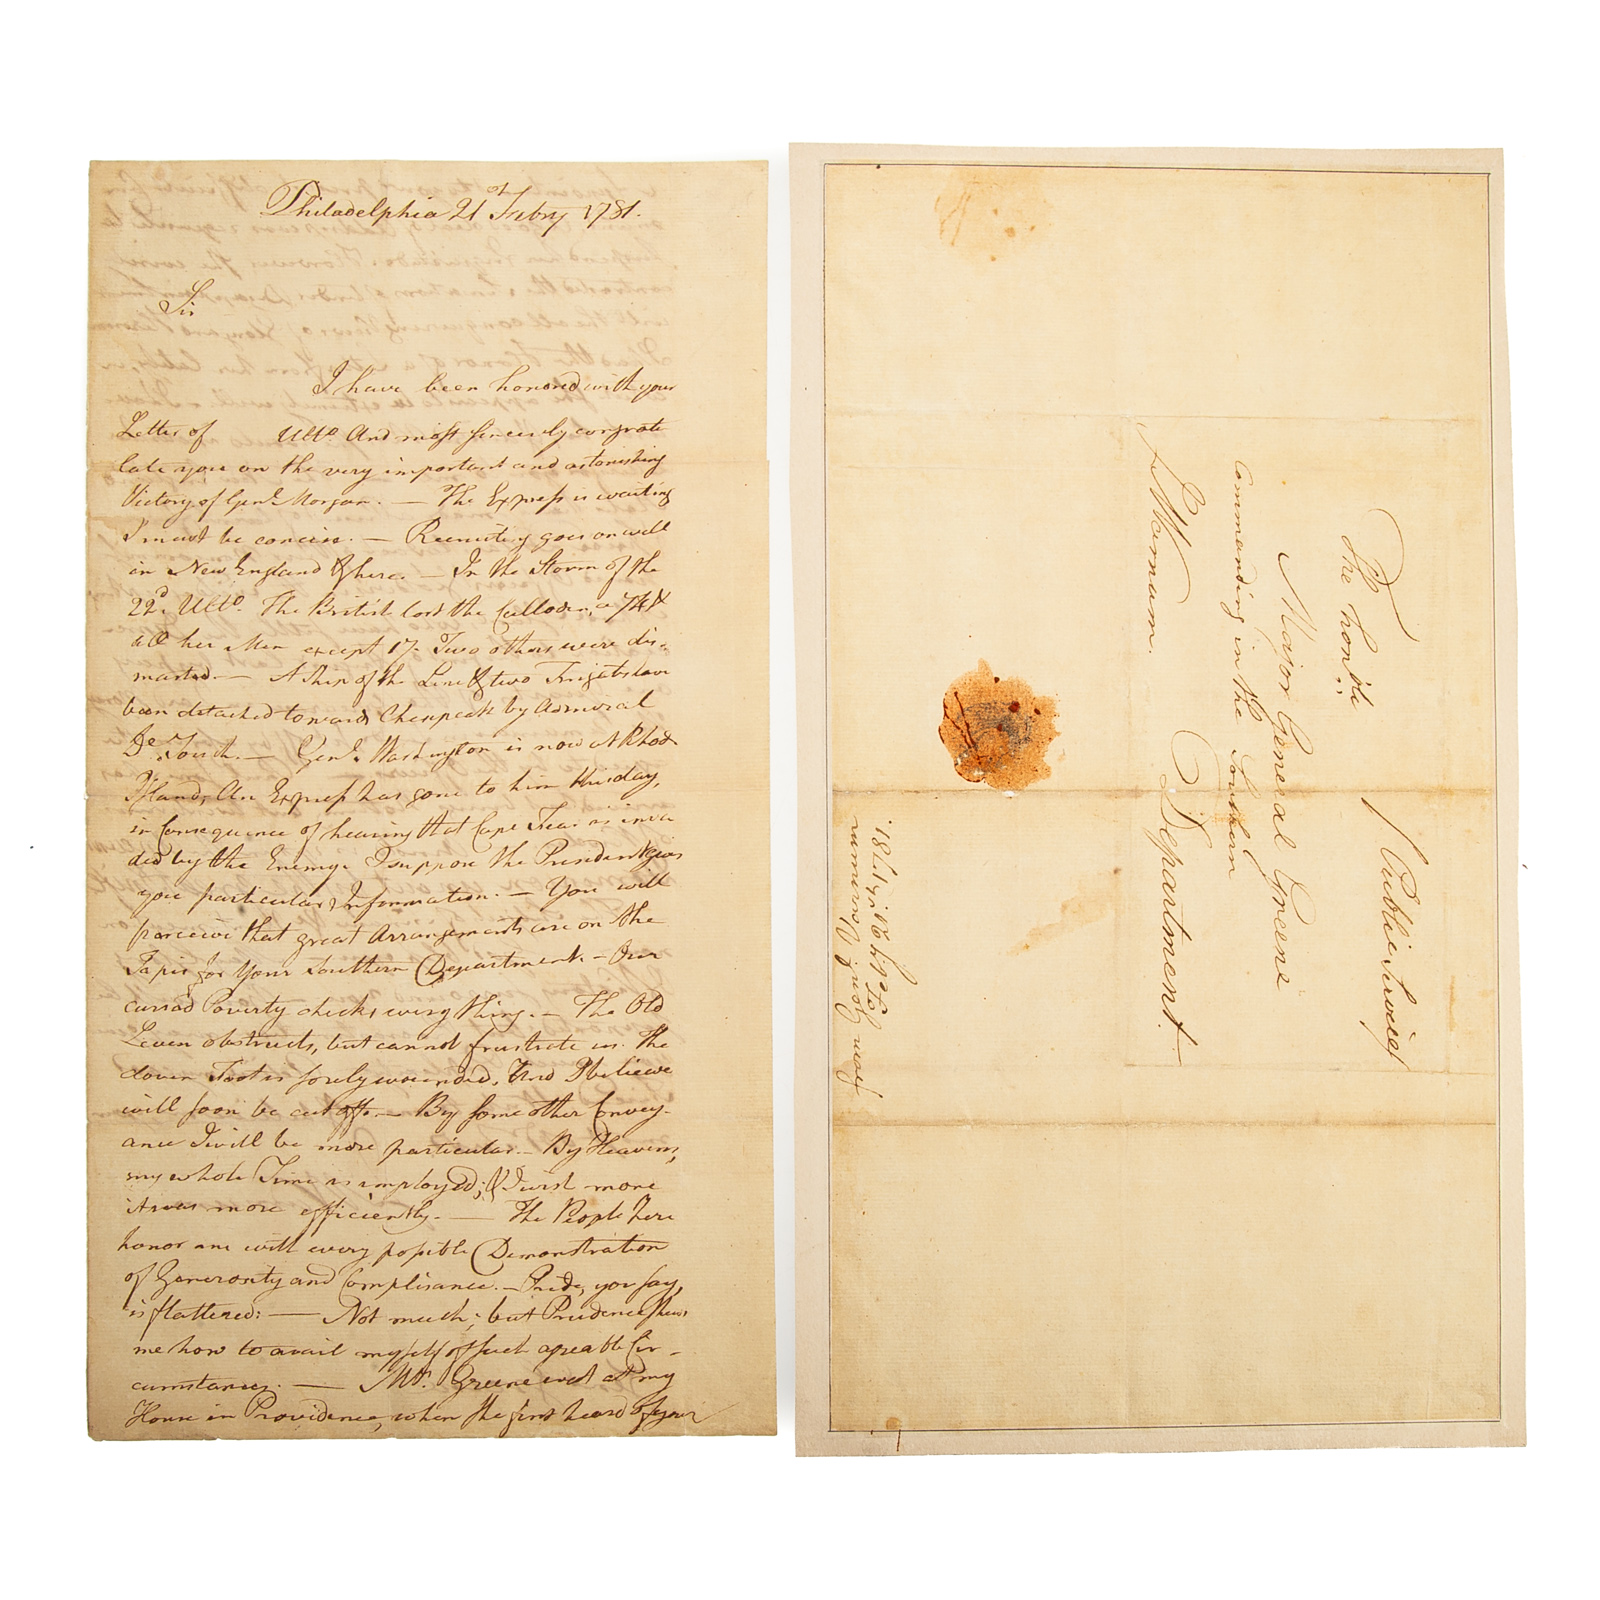 Philadelphia 21st Febry 1781.
Sir
I have been honored with your
Letter of Ulto And most sincerely congratu
late you on the very important and astonishing
Victory of Genl. Morgan. — The Express is waiting
I must be concise. — Recruiting goes on well
in New England & here. — In the Storm of the
22d. Ulto. The British lost the Culloden, a 74 &
all her Men except 17. Two others were dis-
masted. — A Ship of the Line & two Frigates have
been detached towards Chesapeak by Admiral
De Touch. — Genl. Washington is now at Rhode
Island, An Express has gone to him this day,
in Consequence of hearing that Cape Fear is inva
ded by the Enemy. I suppose the President gives
you particular Information. — You will
perceive that great Arrangements are on the
Tapis for Your Southern Department. — Our
cursed Poverty checks every thing. — The Old
Leven obstructs, but cannot frustrate us. The
cloven Foot is sorely wounded, And I believe
will soon be cut off. — By some other Convey-
ance I will be more particular. — By Heavens,
my whole Time is employed; & I wish more
it was more efficiently. — The People here
honor me with every possible Demonstration
of Generosity and Complisance. — Pride, you say,
is flattered: — Not much; but Prudence shews
me how to avail myself of such agreable Cir-
cumstances. — Mrs. Greene was at my
House in Providence, when she first heard of your
Public Service
The honble
Major General Greene
Commanding in the Southern
Department.
J. M. Varnum.
from Genl. Varnum
Feby 21st. 1781.